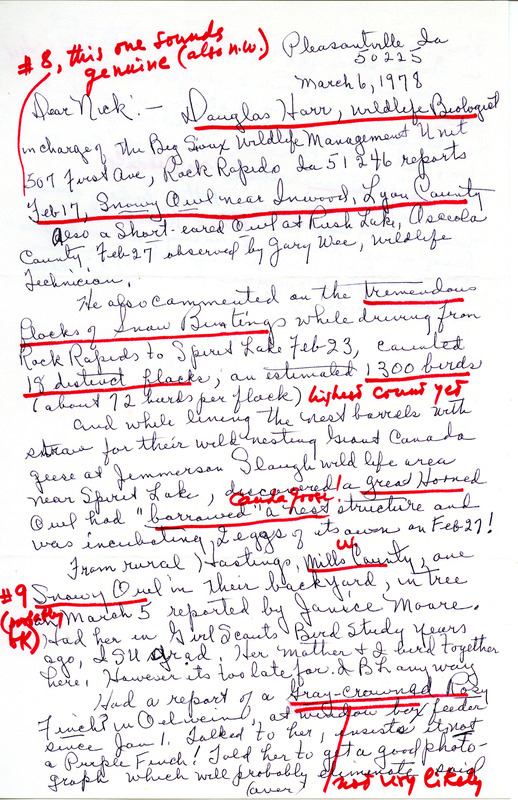 #8, this one sounds
genuine (also n.w.)
Pleasantville, Ia
50225
March 6, 1978
Dear Nick: - Douglas Harr, Wildlife Biologist
in charge of The Big Sioux Wildlife Management Unit
507 First Ave, Rock Rapids Ia 51246 reports
Feb 17, Snowy Owl near Inwood, Lyon County
Also a Short-eared Owl at Rush Lake, Osceola
County, Feb 27 observed by Gary Wee, Wildlife
Technician.
He also commented on the tremendous
flocks of Snow Buntings while driving from
Rock Rapids to Spirit Lake Feb 23, counted
18 distinct flocks, an estimated 1300 birds
(about 72 birds per flock) highest count yet
And while lining the nest barrels with
straw for their wild nesting Giant Canada
geese at Jemmerson Slough wild life area
near Spirit Lake, discovered a great Horned
Canada goose!
Owl had "borrowed" a nest structure and
was incubating 2 eggs of its own on Feb 27!
SW
From rural Hastings, Mills County, one
#9 Snowy Owl in their backyard, in tree
(probably OK)
on March 5 reported by Janice Moore.
Had her in Girl Scouts Bird Study years
ago, ISU grad. Her mother & I bird together
here. However its too late for I B L anyway
Had a report of a Gray-crowned Rosy
Finch? in Oelwein, at window box feeder
since Jan 1. Talked to her, insists it not
a Purple Finch! Told her to get a good photo-
graph which will probably eliminate said
(over)
not very likely